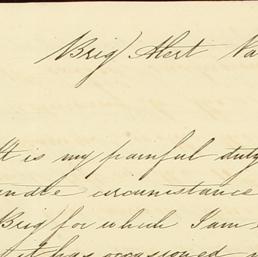 Brig) Alert Va
It is my painful duty
circumstance
Brig) for which I am
it has occasioned